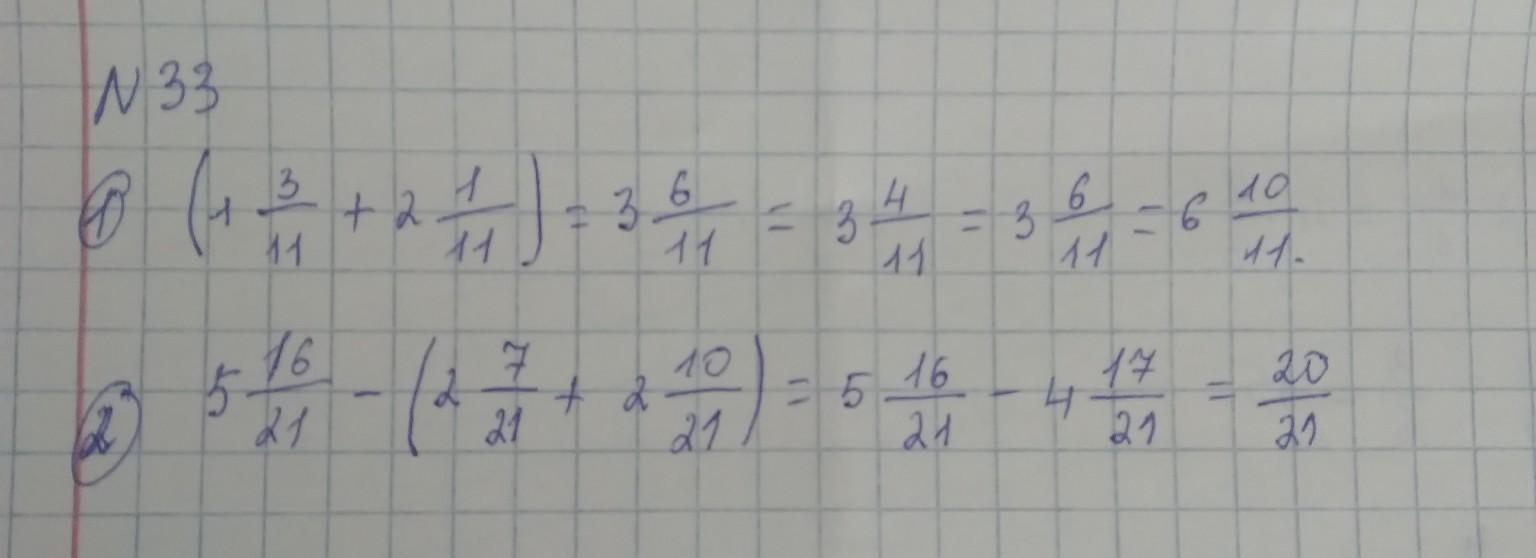 N 33
1) (1 3/11 + 2 1/11) = 3 6/11 = 3 4/11 = 3 6/11 = 6 10/11.
2) 5 16/21 - (2 7/21 + 2 10/21) = 5 16/21 - 4 17/21 = 20/21